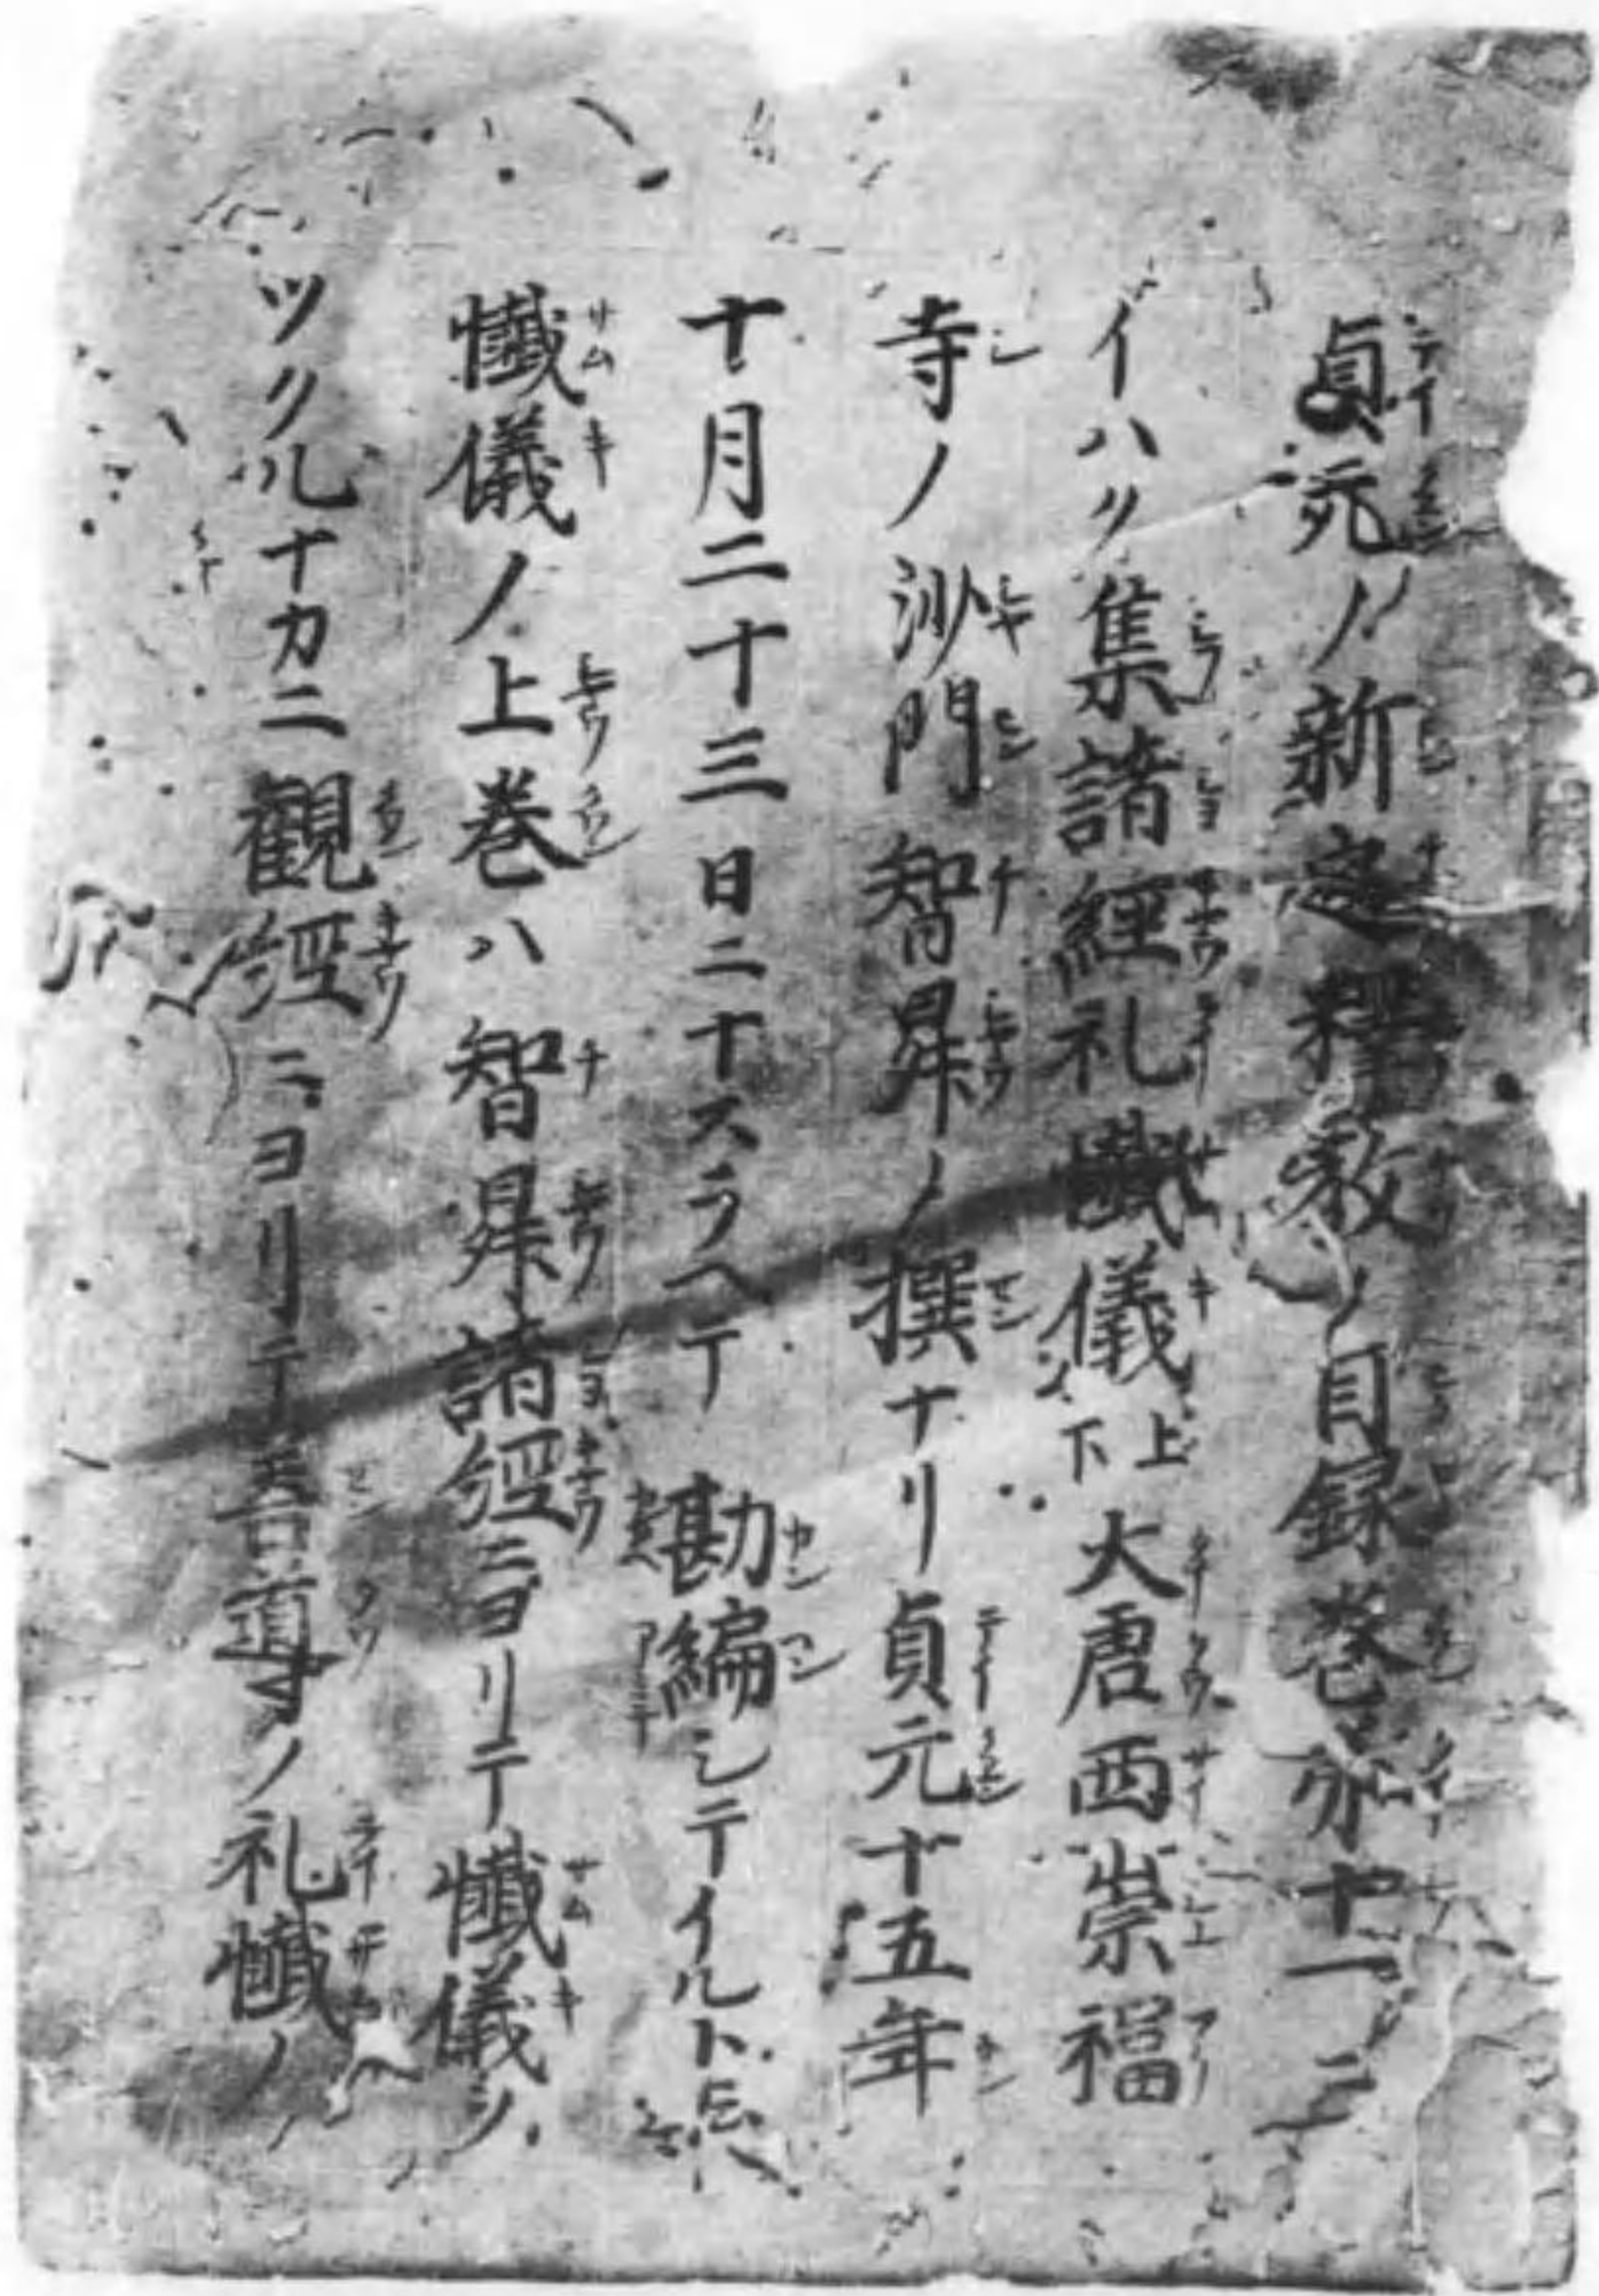 貞元ノ新定釋教ノ目録巻第十一ニ
イハク集諸經礼懺儀上下大唐西崇福
寺ノ沙門智昇ノ撰ナリ貞元十五年
十月二十三日ニナスラヘテ勘編シテイルト云々
懺儀ノ上巻ハ智昇諸經ニヨリテ懺儀ヲ
ツクルナカニ觀經ニヨリテ善導ノ礼懺ノ